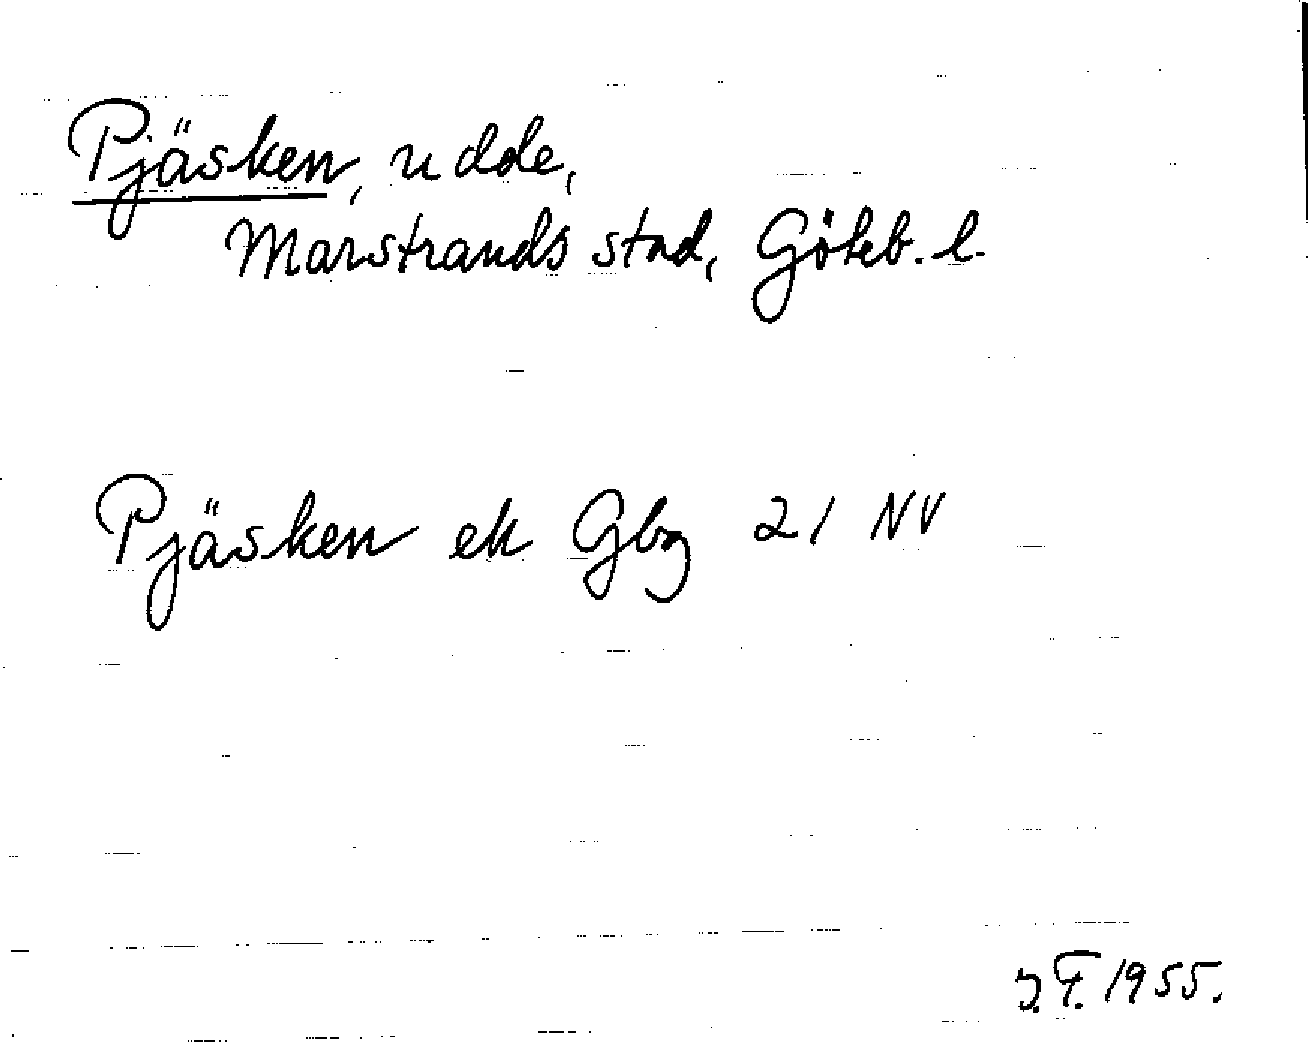 Pjäsken, udde,
Marstrands stad, Göteb. l.
Pjäsken ek Gbg 21 NV
J.F. 1955.